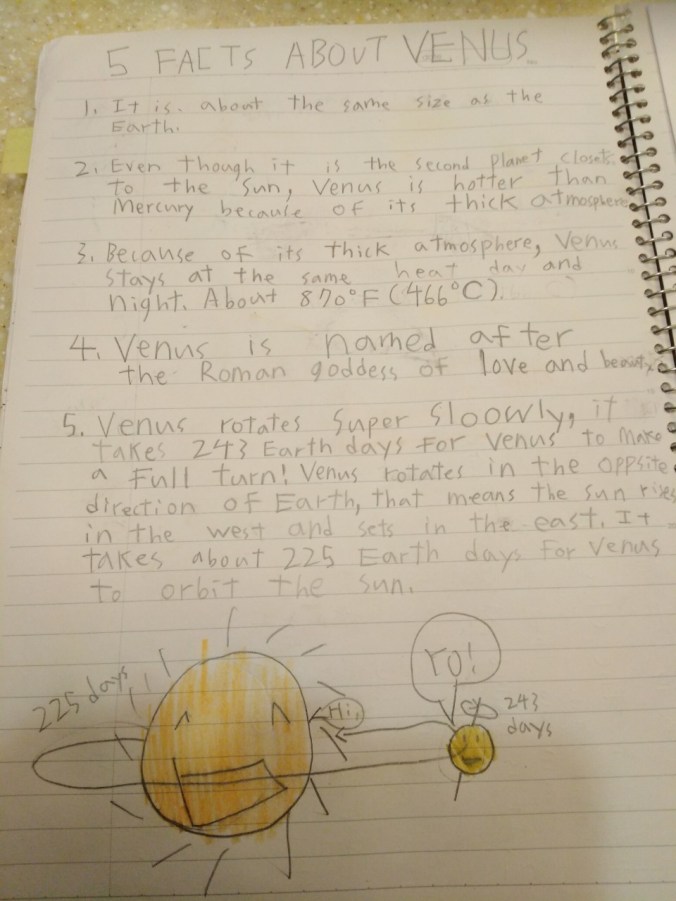 5 FACTS ABOUT VENUS
1. It is. about the same size as the
Earth.
2. Even though it is the second planet closets
to the sun, Venus is hotter than
Mercury because of its thick atmosphere
3. Because of its thick atmosphere, Venus
stays at the same heat day and
night. About 870°F (466°C).
4. Venus is named after
the Roman goddess of love and beauty
5. Venus rotates super sloowly, it
takes 243 Earth days for Venus to make
a full turn! Venus rotates in the oppsite
direction of Earth, that means the sun rises
in the west and sets in the east. It
takes about 225 Earth days for Venus
to orbit the sun.
YO!
225 days
Hi,
243
days